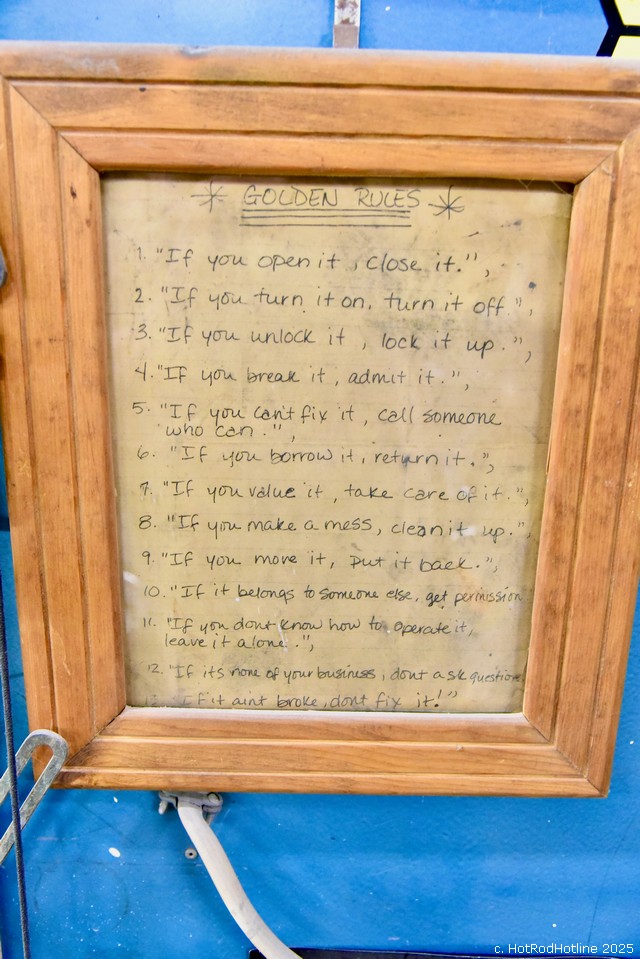 * GOLDEN RULES *
1. "If you open it, close it.",
2. "If you turn it on, turn it off.",
3. "If you unlock it, lock it up.",
4. "If you break it, admit it.",
5. "If you can't fix it, call someone
who can.",
6. "If you borrow it, return it.",
7. "If you value it, take care of it.",
8. "If you make a mess, clean it up.",
9. "If you move it, put it back.",
10. "If it belongs to someone else, get permission
11. "If you dont know how to operate it,
leave it alone.",
12. "If its none of your business, dont ask questions
13. "If it aint broke, dont fix it!"
c. HotRodHotline 2025